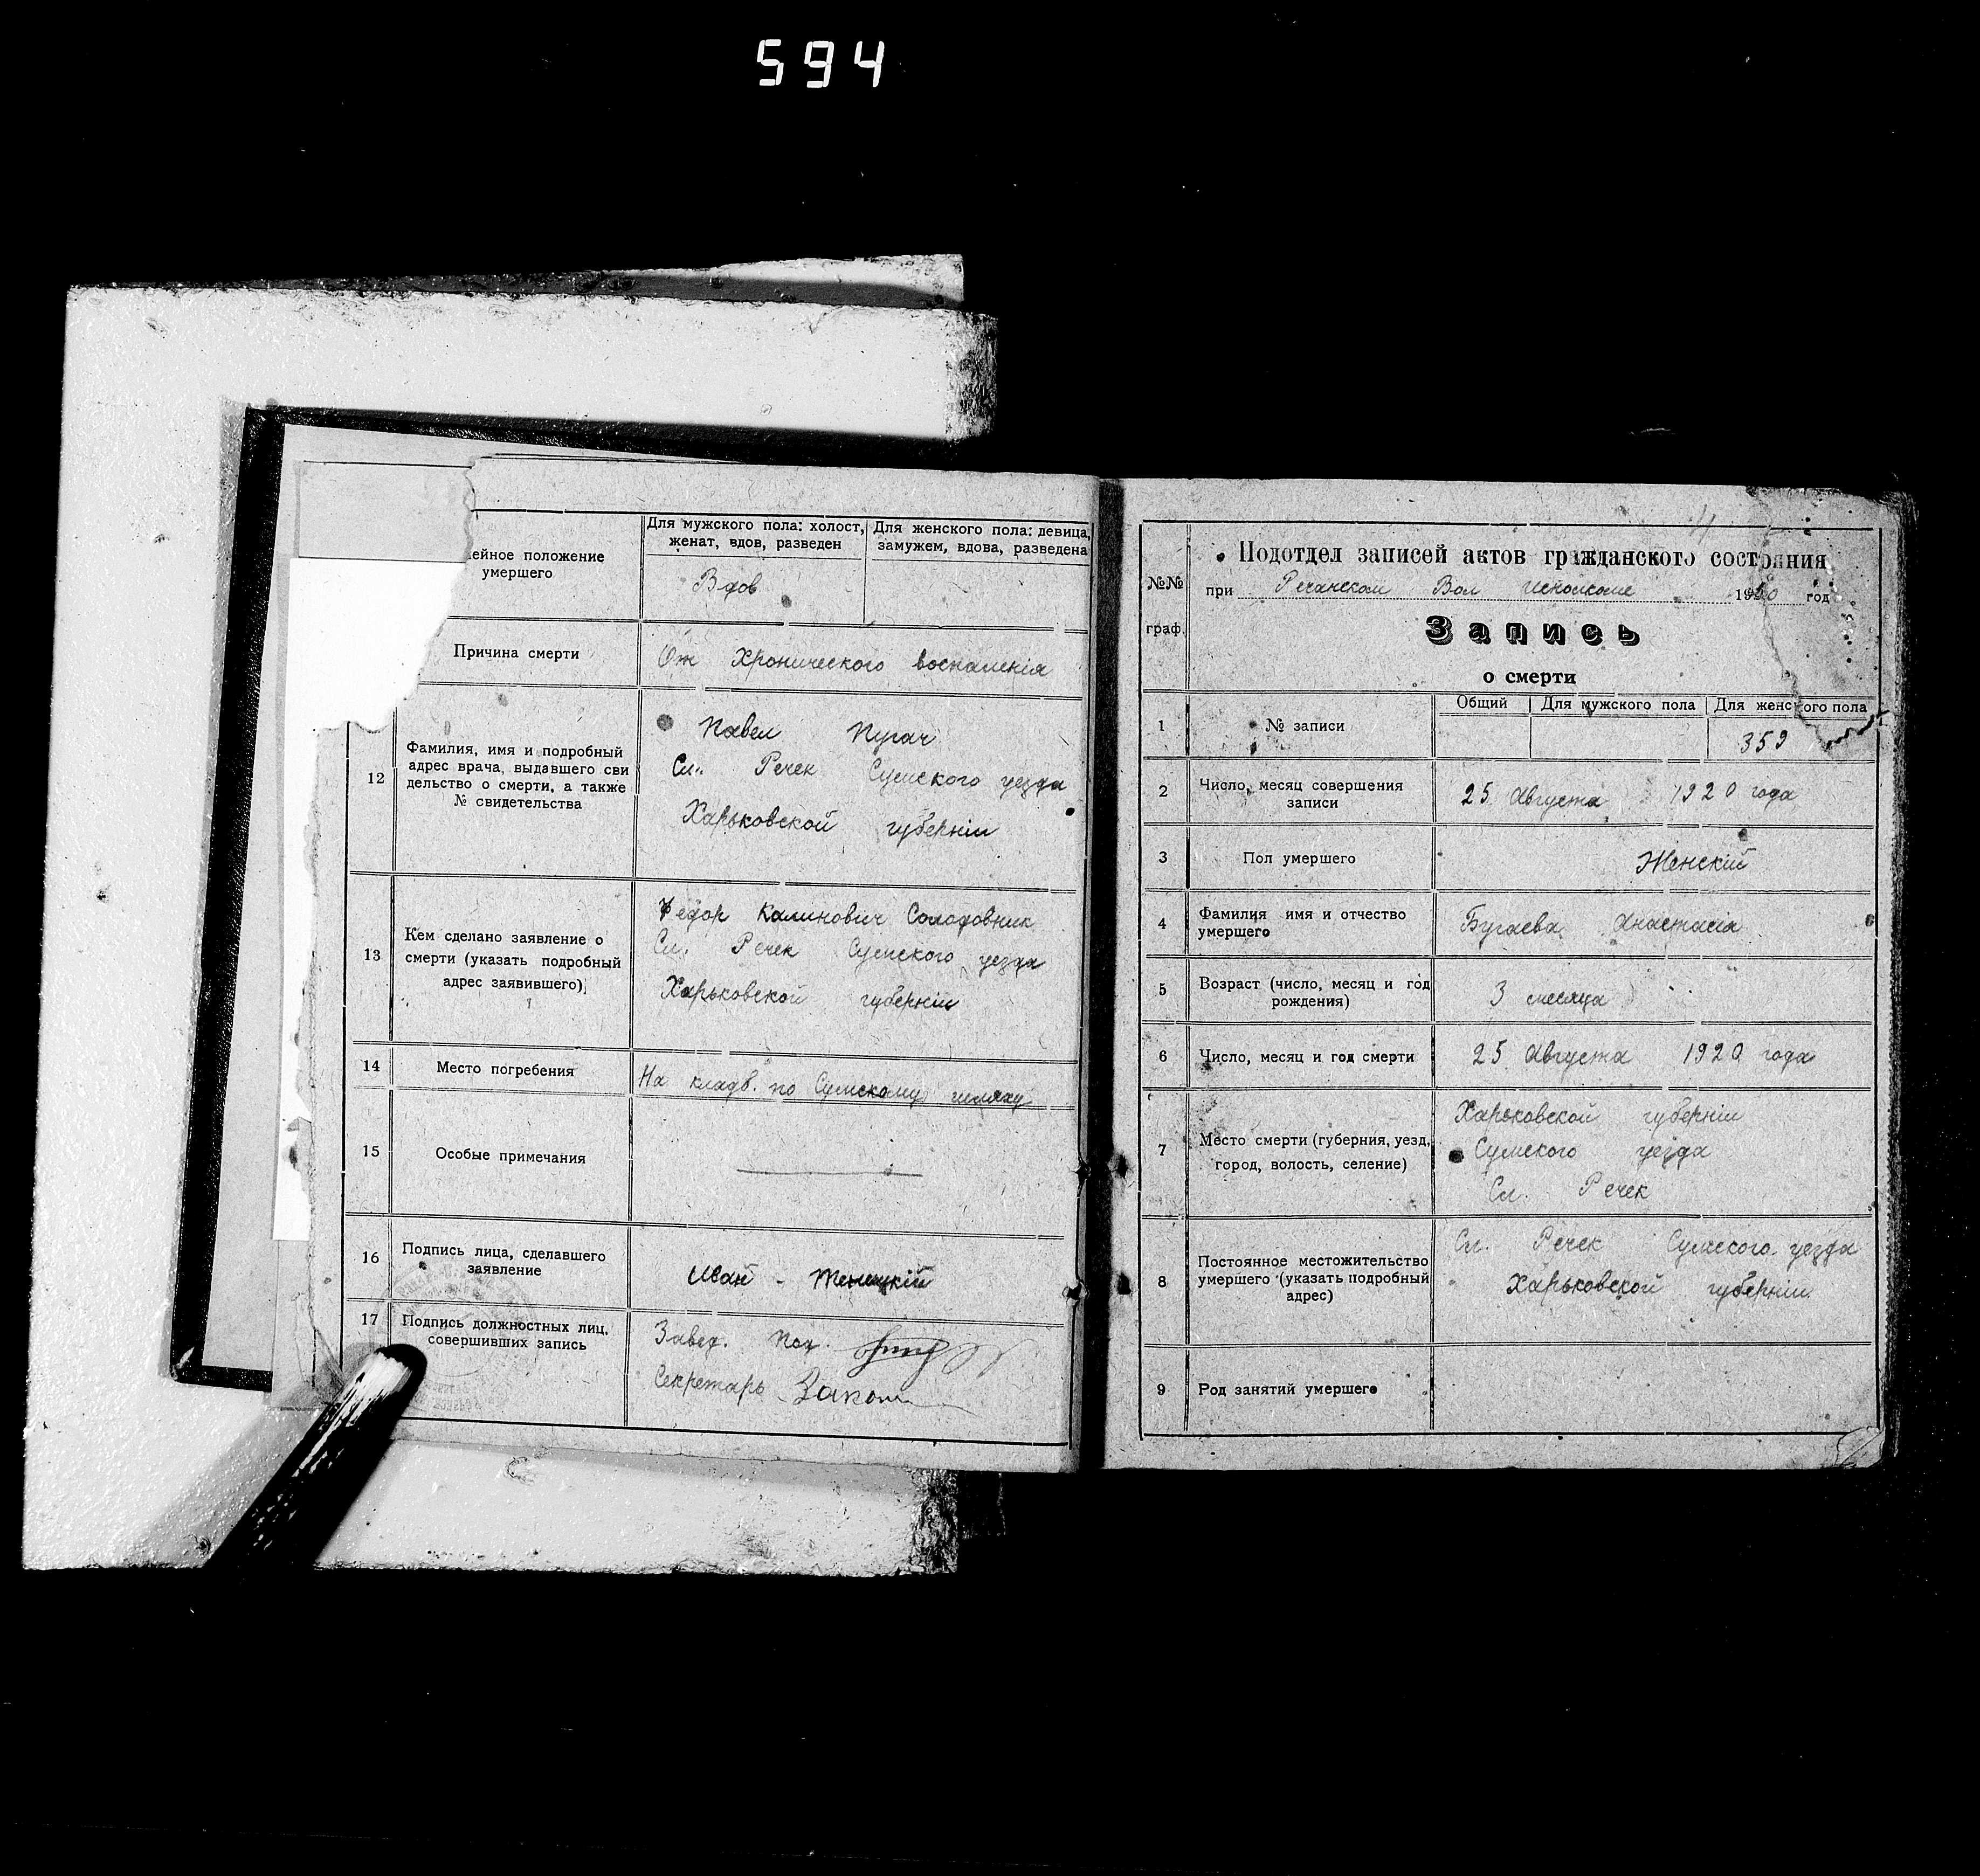 594
ейное положение
умершего
Для мужского пола: холост,
женат, вдов, разведен
Для женского пола: девица,
замужем, вдова, разведена
Вдов
Причина смерти
От Хронического воспаленія
12
Фамилия, имя и подробный
адрес врача, выдавшего сви
детельство о смерти, а также
№ свидетельства
Павел Пугач
Сл. Речек Сумского уезда
Харьковской губерніи
13
Кем сделано заявление о
смерти (указать подробный
адрес заявившего)
Федор Калинович Солодовник
Сл. Речек Сумского уезда
Харьковской губерніи
14
Место погребения
На кладб. по Сумскому шляху
15
Особые примечания
16
Подпись лица, сделавшего
заявление
17
Подпись должностных лиц,
совершивших запись
Завед. Под.
Секретарь
№№
граф.
Подотдел записей актов гражданского состояния
при Речанском Вол Исполкоме 1920 год
Запись
о смерти
1
№ записи
Общий
Для мужского пола
Для женского пола
359
2
Число, месяц совершения
записи
25 Августа 1920 года
3
Пол умершего
Женскій
4
Фамилия имя и отчество
умершего
Бугаева Анастасія
5
Возраст (число, месяц и год
рождения)
3 месяца
6
Число, месяц и год смерти
25 Августа 1920 года
7
Место смерти (губерния, уезд,
город, волость, селение)
Харьковской губерніи
Сумского уезда
Сл. Речек
8
Постоянное местожительство
умершего (указать подробный
адрес)
Сл. Речек Сумского уезда
Харьковской губерніи
9
Род занятий умершего